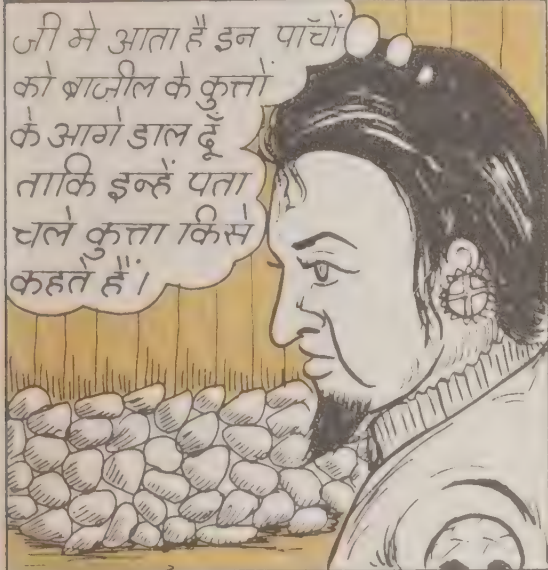 जी मे आता है इन पाँचों
को ब्राजील के कुत्तों
के आगे डाल दूँ
ताकि इन्हें पता
चले कुत्ता किसे
कहते हैं।